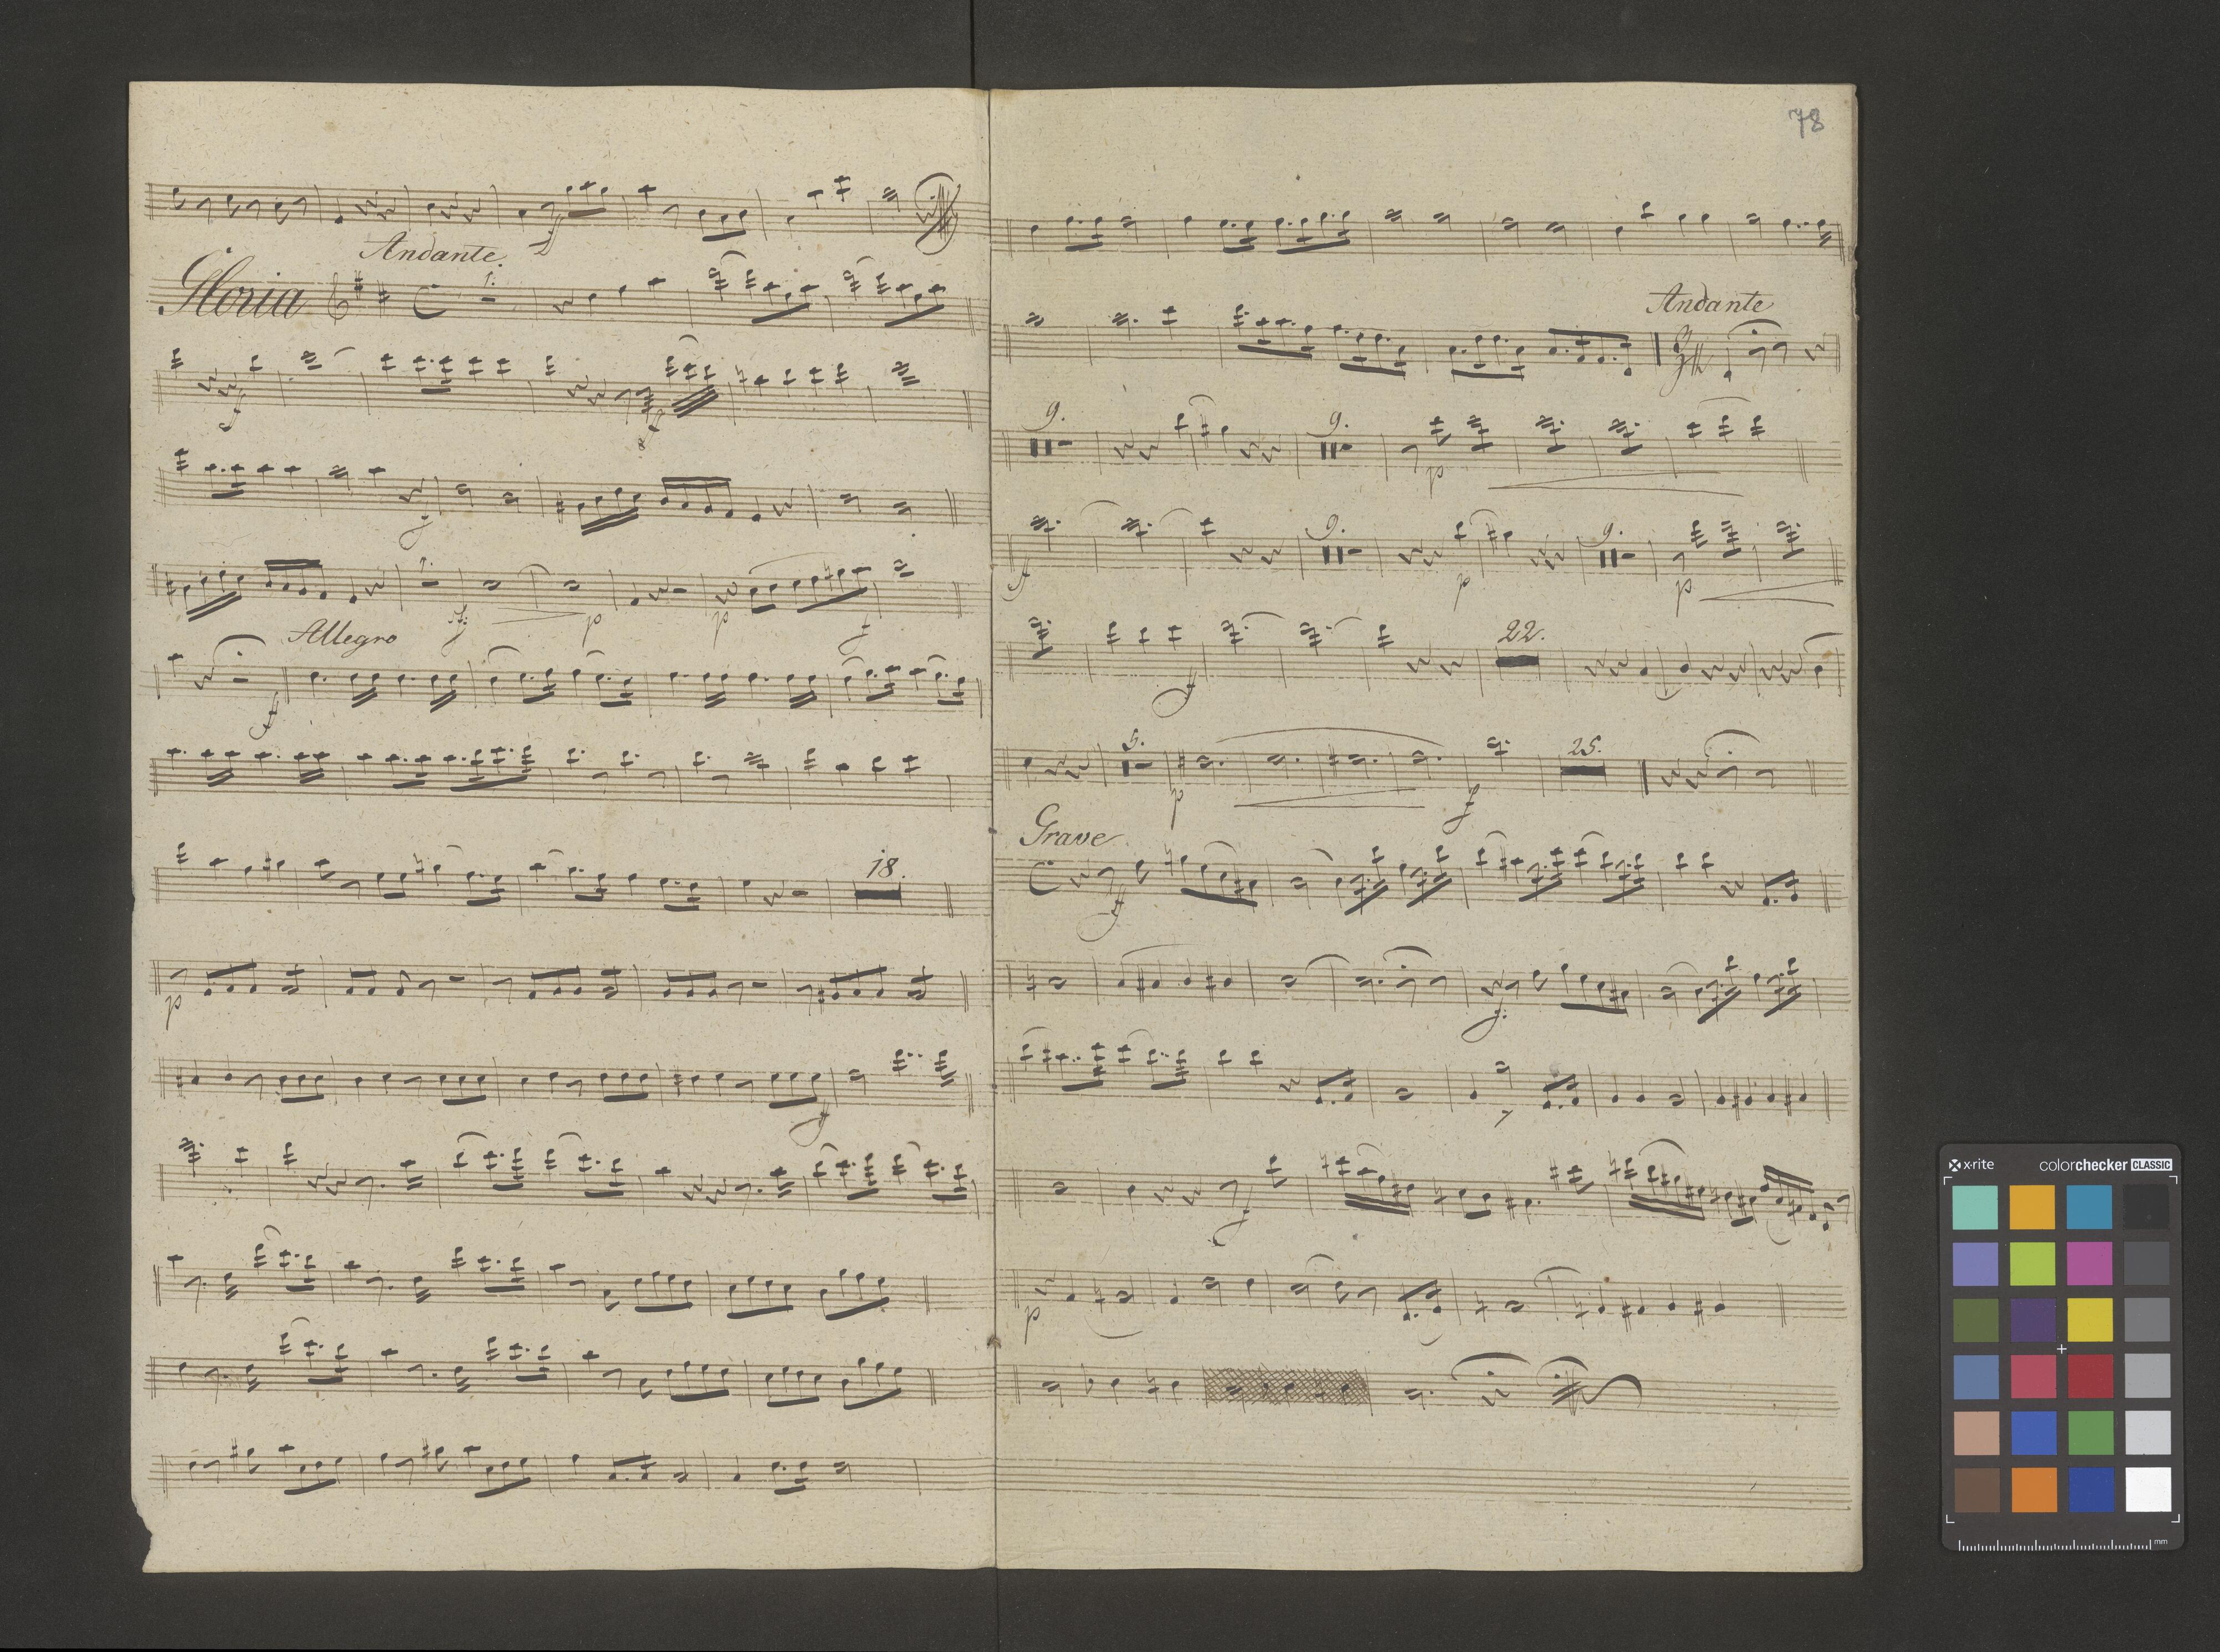 ff
Andante.
Gloria 1.
f ff
f
1. sf: p p f
Allegro
f
18.
p
f
78
Andante
9. 9.
p
f 9. p 9. p
f 22.
5. p f 25.
Grave
ff
f:
f
p
x-rite colorchecker CLASSIC
mm